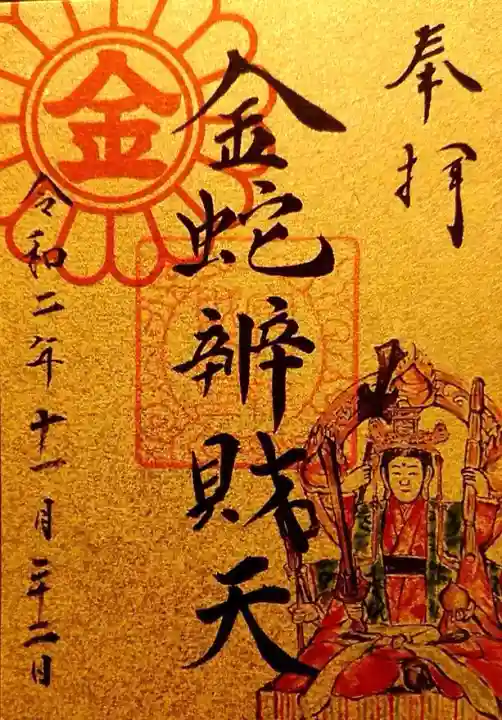 奉拝
金蛇辨財天
令和二年十一月二十二日
金